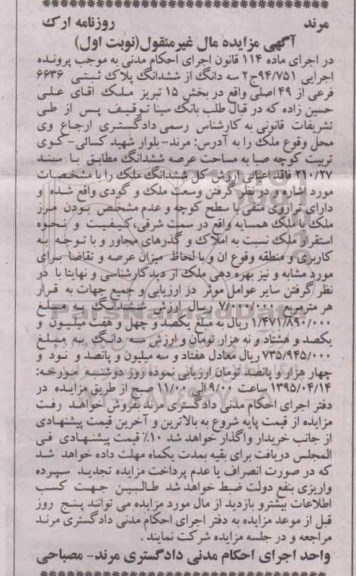 مرند روزنامه ارک
آگهی مزایده مال غیرمنقول(نوبت اول)
در اجرای ماده ۱۱۴ قانون اجرای احکام مدنی به موجب پرونده
اجرایی ۹۴/۷۵۱ج۲ سه دانگ از ششدانگ پلاک ثبتی ۶۶۳۶
فرعی از ۴۹ اصلی واقع در بخش ۱۵ تبریز ملک آقای علی
حسین زاده که در قبال طلب بانک سینا توقیف پس از طی
تشریفات قانونی به کارشناس رسمی دادگستری ارجاع وی
محل وقوع ملک را به آدرس: مرند- بلوار شهید کسائی- کوی
تربیت کوچه صبا به مساحت عرصه ششدانگ مطابق با سند
۲۱۰/۲۷ فاقد اعیانی ارزش کل ششدانگ ملک را با مشخصات
مورد اشاره و در نظر گرفتن وسعت ملک و گودی واقع شده و
دارای ترازوی منفی با سطح کوچه و عدم مشخص بودن مرز
ملک با ملک همسایه واقع در سمت شرقی، کیفیت و نحوه
استقرار ملک نسبت به املاک و گذرهای مجاور و با توجه به
کاربری و منطقه وقوع آن و با لحاظ میزان عرضه و تقاضا برای
مورد مشابه و نیز بهره دهی ملک از دید کارشناسی و نهایتا با در
نظر گرفتن سایر عوامل موثر در ارزیابی و جمیع جهات به قرار
هر مترمربع ۷/۰۰۰/۰۰۰ ریال ارزش ششدانگ به مبلغ
۱/۴۷۱/۸۹۰/۰۰۰ ریال به مبلغ یکصد و چهل و هفت میلیون و
یکصد و هشتاد و نه هزار تومان و ارزش سه دانگ به مبلغ
۷۳۵/۹۴۵/۰۰۰ ریال معادل هفتاد و سه میلیون و پانصد و نود و
چهار هزار و پانصد تومان ارزیابی نموده روز دوشنبه مورخه:
۱۳۹۵/۰۴/۱۴ ساعت ۹/۰۰ الی ۱۱/۰۰ صبح از طریق مزایده در
دفتر اجرای احکام مدنی دادگستری مرند بفروش خواهد رفت
مزایده از قیمت پایه شروع به بالاترین و آخرین قیمت پیشنهادی
از جانب خریدار واگذار خواهد شد ۱۰٪ قیمت پیشنهادی فی
المجلس دریافت برای بقیه بمدت یکماه مهلت داده خواهد شد
که در صورت انصراف یا عدم پرداخت مزایده تجدید سپرده
واریزی بنفع دولت ضبط خواهد شد طالبین جهت کسب
اطلاعات بیشترو بازدید از مال مورد مزایده می توانند پنج روز
قبل از موعد مزایده به دفتر اجرای احکام مدنی دادگستری مرند
مراجعه و در جلسه مزایده شرکت نمایند.
واحد اجرای احکام مدنی دادگستری مرند- مصباحی